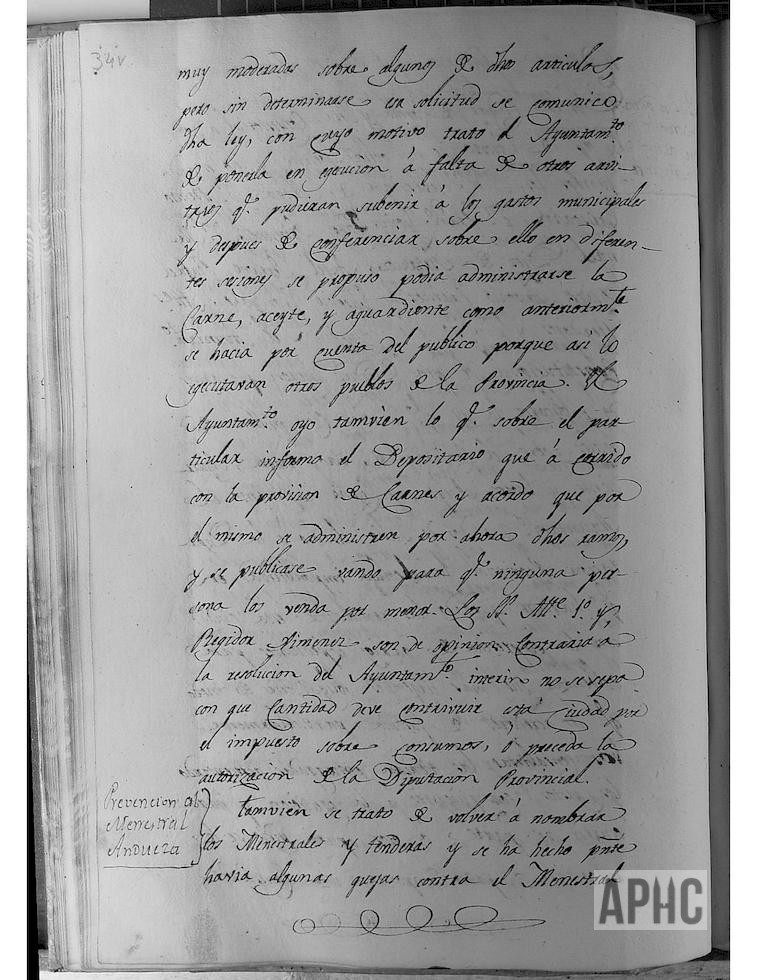 34v
muy moderadas sobre algunos de dhos articulos,
pero sin determinarse esa solicitud se comunicó
dha ley, con cuyo motivo trato el Ayuntam.to
de ponerla en egecucion á falta de otros arvi-
trios q.e pudieran subenir á los gastos municipales
y despues de conferenciar sobre ello en diferen-
tes sesiones se propuso podia administrarse la
Carne, aceyte, y aguardiente como anteriorm.te
se hacia por cuenta del publico porque asi lo
egecutavan otros pueblos de la Provincia. El
Ayuntam.to oyo tamvien lo q.e sobre el par-
ticular informo el Depositario que á corrido
con la provision de Carnes y acordo que por
el mismo se administren por ahora dhos ramos,
y se publicase vando para q.e ninguna per-
sona los venda por menor. Los SS. Alc.e 1.o y
Regidor Ximenez son de opinion Contraria a
la resolucion del Ayuntam.to interin no se sepa
con que Cantidad deve contrivuir esta Ciudad por
el impuesto sobre consumos, ó preceda la
autorizacion de la Diputacion Provincial.
Prevencion al
Menestral
Andueza
Tamvien se trato de volver á nombrar
los Menestrales y tenderas y se ha hecho pnte
havia algunas quejas contra el Menestral
APHC